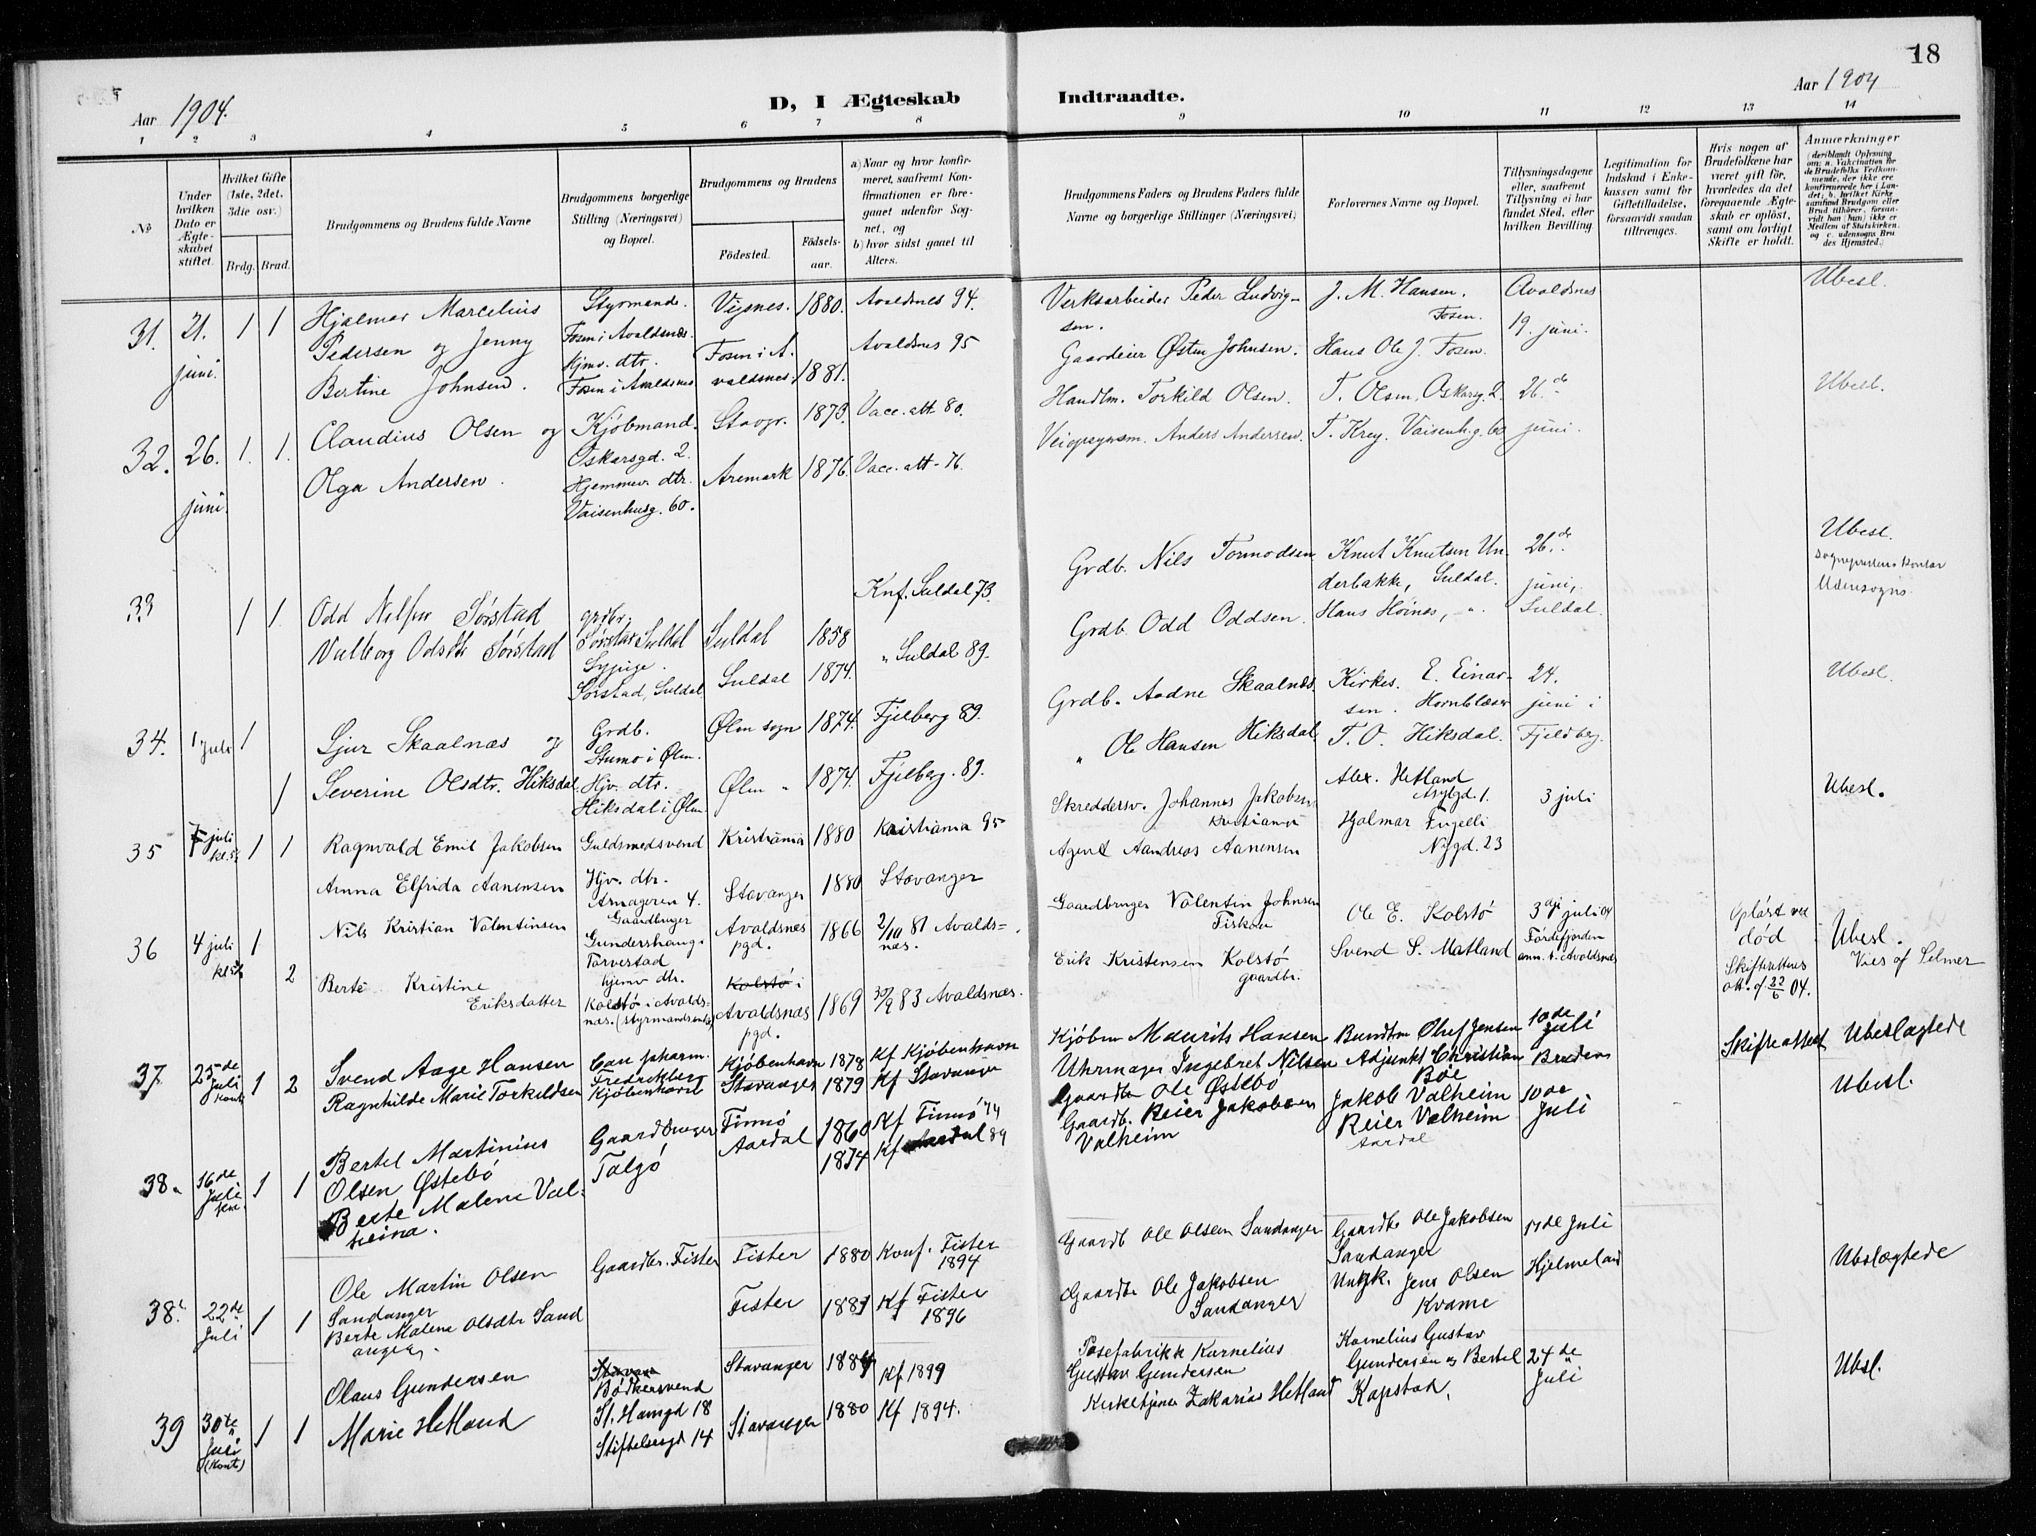 18
Aar 1904.
D, I Ægteskab Indtraadte.
Aar 1904
1 2 3 4 5 6 7 8 9 10 11 12 13 14
No
Under hvilken Dato er Ægteskabet stiftet.
Hvilket Gifte (1ste, 2det, 3die osv.)
Brdg. Brud.
Brudgommens og Brudens fulde Navne
Brudgommens borgerlige Stilling (Næringsvei) og Bopæl.
Brudgommens og Brudens
Födested.
Födsels-aar.
a) Naar og hvor konfirmeret, saafremt Konfirmationen er foregaaet udenfor Sognet, og
b) hvor sidst gaaet til Alters.
Brudgommens Faders og Brudens Faders fulde Navne og borgerlige Stillinger (Næringsvei)
Forlovernes Navne og Bopæl.
Tillysningsdagene eller, saafremt Tillysning ei har fundet Sted, efter hvilken Bevilling.
Legitimation for Indskud i Enkekassen samt for Giftetilladelse, forsaavidt saadan tiltrænges.
Hvis nogen af Brudefolkene har været gift för, hvorledes da det foregaaende Ægteskab er oplöst, samt om lovligt Skifte er holdt.
Anmærkninger
31. 21. juni. 1 1
Hjalmar Marcelius Pedersen og Jenny Bertine Johnsen.
Styrmand. Fosen i Avaldsnæs.
Hjmv. dtr. Fosen i Avaldsnes
Vigsnes. 1880. Avaldsnes 94.
Fosen i Avaldsnes. 1881. Avaldsnes 95
Verksarbeider Peder Ludvigsen.
Gaardeier Østen Johnsen.
J. M. Hansen. Fosen.
Hans Ole J. Fosen.
Avaldsnes 19. juni.
Ubesl.
32. 26. juni. 1. 1.
Claudius Olsen og
Olga Andersen.
Kjöbmand. Oskarsgd. 2.
Hjemmev. dtr. Vaisenhusg. 60.
Stavgr. 1873. Vacc. att. 80.
Aremark 1876. Vacc. att. 76.
Handlm. Torkild Olsen.
Veiopsynsm. Anders Andersen.
T. Olsen, Oskarsg. 2.
T. Krey. Vaisenh.g. 60
26.de juni.
Ubesl.
33 1 1.
Odd Nilsen Sörstad
Valborg Odsdtr Sörstad
grdbr. Sörstad Suldal
Sypige. Sörstad, Suldal
Suldal 1858 Knf. Suldal 73.
Suldal 1874. " Suldal 89.
Grdb. Nils Tormodsen
Grdb. Odd Oddsen.
Knut Knutsen Underbakke, Suldal.
Hans Höines, - " .
26.de juni, Suldal.
Ubesl.
Sognepræstens Kontor
Udensogns
34. 1 juli 1 1
Sjur Skaalnæs og
Severine Olsdtr. Hiksdal.
Grdb. Stumo i Ølen.
Hjv. dtr. Hiksdal i Ølen.
Ølen sogn 1874. Fjelberg 89.
Ølen " 1874. Fjelberg. 89.
Grdb. Aadne Skaalnæs.
" Ole Hansen Hiksdal.
Kirkes. E. Einarsen. Hornblæser
T. O. Hiksdal.
24. juni i Fjeldberg.
Ubesl.
35 juli 1 1
Ragnvald Emil Jakobsen
Anna Elfrida Aanensen
Guldsmedsvend
Hjv. dtr. Armageren 4.
Kristiania 1880 Kristiania 95
Stavanger 1880 Stavanger
Skreddersv. Johannes Jakobsen Kristiania
Agent Aandreas Aanensen
Alex. Hetland Asylgd. 1.
Hjalmar Nygd. 23
3 juli
Ubesl.
36 4 juli 1 2
Nils Kristian Valentinsen
Berte Kristine Eriksdatter
Gaardbruger Gundershaug Torvestad
hjemv dtr. Kolstö i Avaldsnæs. (styrmandsenke)
Avaldsnæs pgd. 1866 2/10 81 Avaldsnæs.
Kolstö i Avaldsnæs pgd. 1869 30/9 83 Avaldsnæs.
Gaardbruger Valentin Johnsen
Erik Kristensen Kolstö gaardbr.
Ole E. Kolstö
Svend S. Matland
3die juli 04 Fördefjorden ann. t. Avaldsnæs
Oplöst ved död Skifterettens att. af 04.
Ubesl.
Vies af Selmer
37 25de Juli 1 2
Svend Aage Hansen
Ragnhilde Marie Torkildsen
Can. pharm. Fredriksberg Kjöbenhavn
Kjöbenhavn 1878 Kf Kjöbenhavn
Stavanger 1879 Kf Stavanger
Kjöbm Maurits Hansen
Uhrmager Ingebret Nilsen
Bundtm Oluf Jensen
Adjunkt Christian Böe
10de Juli Bruden
Skifteattest
Ubeslægtede
38. 16de Juli 1 1
Bertel Martinius Olsen Østebö
Berte Malene Valheim.
Gaardbruger Talgö
Finnö 1860 Kf Finnö 74
Aardal 1874 Kf Aardal 89
Gaardbr Ole Østebö
Gaardb. Reier Jakobsen Valheim
Jakob Valheim
Reier Valheim Aardal
10de Juli
Ubesl.
38. 22de Juli 1 1
Ole Martin Olsen Sandanger
Berte Malene Olsdtr Sandanger.
Gaardbr. Fister
Fister 1880 Konf. Fister 1894
Fister 1881 Kf Fister 1896
Gaardb Ole Olsen Sandanger
Gaardbr Ole Jakobsen Sandanger
Gaardbr Ole Jakobsen Sandanger
Ungk. Jens Olsen Kvame
17de Juli Hjelmeland
Ubslægtede
39 30te Juli (Kont) 1 1
Olaus Gundersen
Marie Hetland
Bödkersvend St. Hansgd 18
Stiftelsesgd 14
Stavanger 1884 Kf 1899
Stavanger 1880 Kf 1894.
Posefabrikk Kornelius Gustav Gundersen
Kirketjener Zakarias Hetland
Kornelius Gustav Gundersen og Bertel Kapstad.
24de Juli
Ubsl.